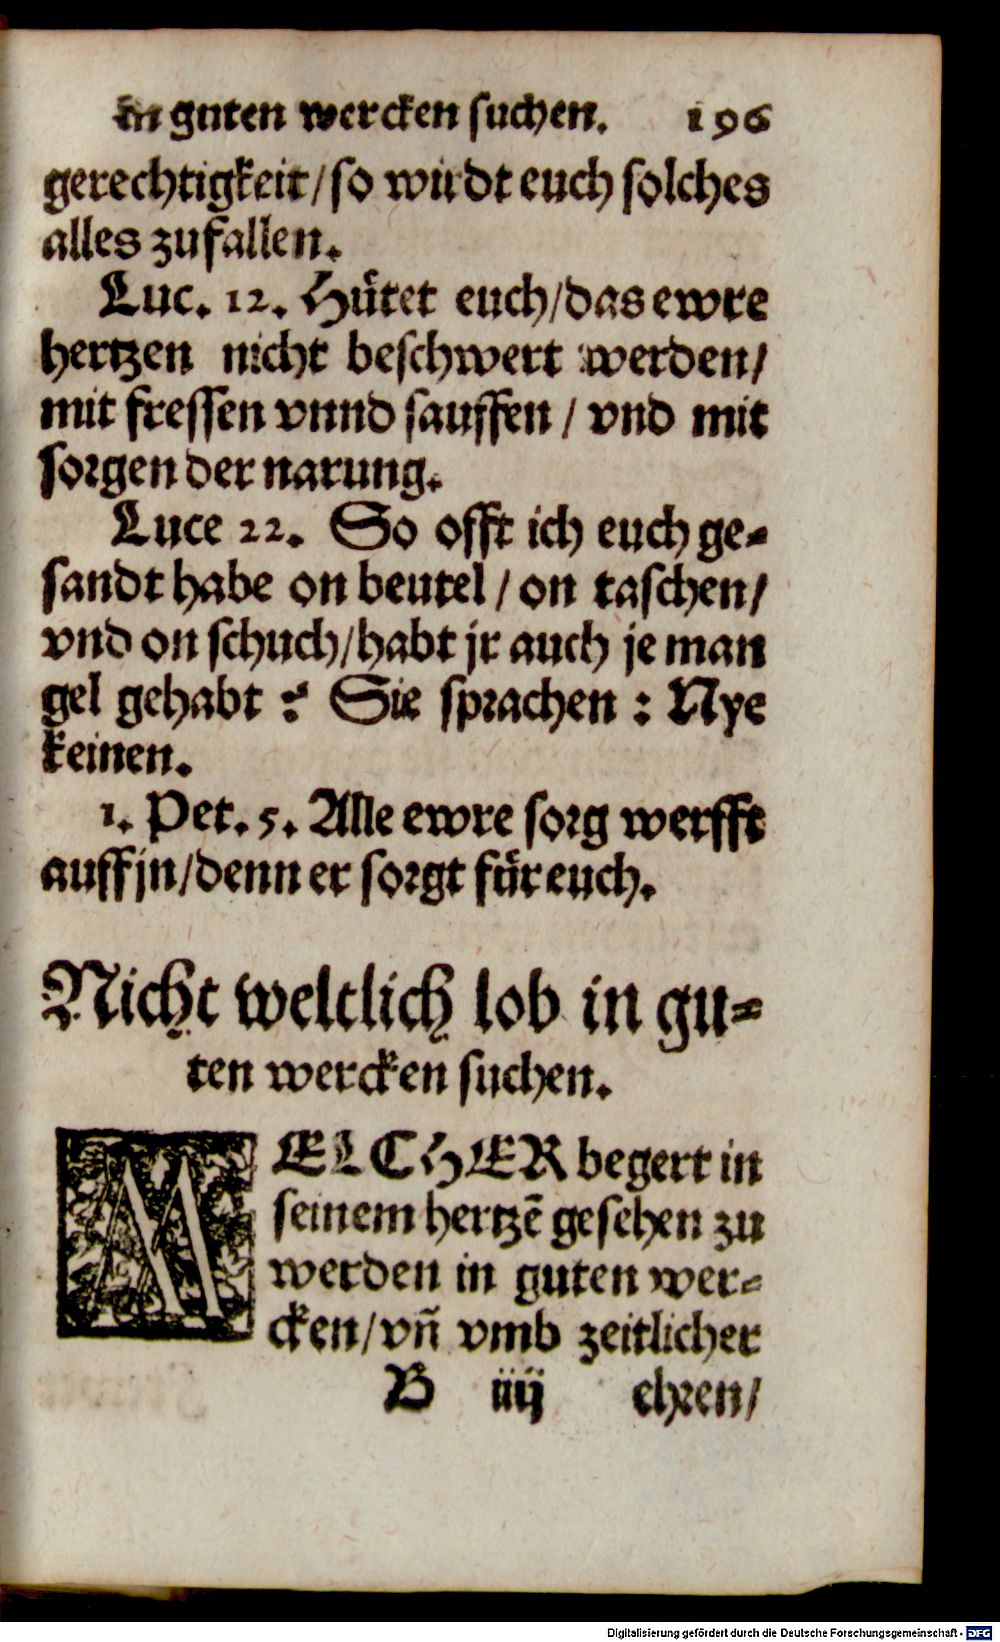 in guten wercken suchen. 196
gerechtigkeit/so wirdt euch solches
alles zufallen.
Luc. 12. Hütet euch/das ewre
hertzen nicht beschwert werden/
mit fressen vnnd sauffen / vnd mit
sorgen der narung.
Luce 22. So offt ich euch ge=
sandt habe on beutel / on taschen/
vnd on schuch/habt jr auch je man
gel gehabt ? Sie sprachen : Nye
keinen.
1. Pet. 5. Alle ewre sorg werfft
auff jn/denn er sorgt für euch.
Nicht weltlich lob in gu=
ten wercken suchen.
WELCHER begert in
seinem hertzē gesehen zu
werden in guten wer=
cken/vñ vmb zeitlicher
B iiij ehren/
Digitalisierung gefördert durch die Deutsche Forschungsgemeinschaft - DFG